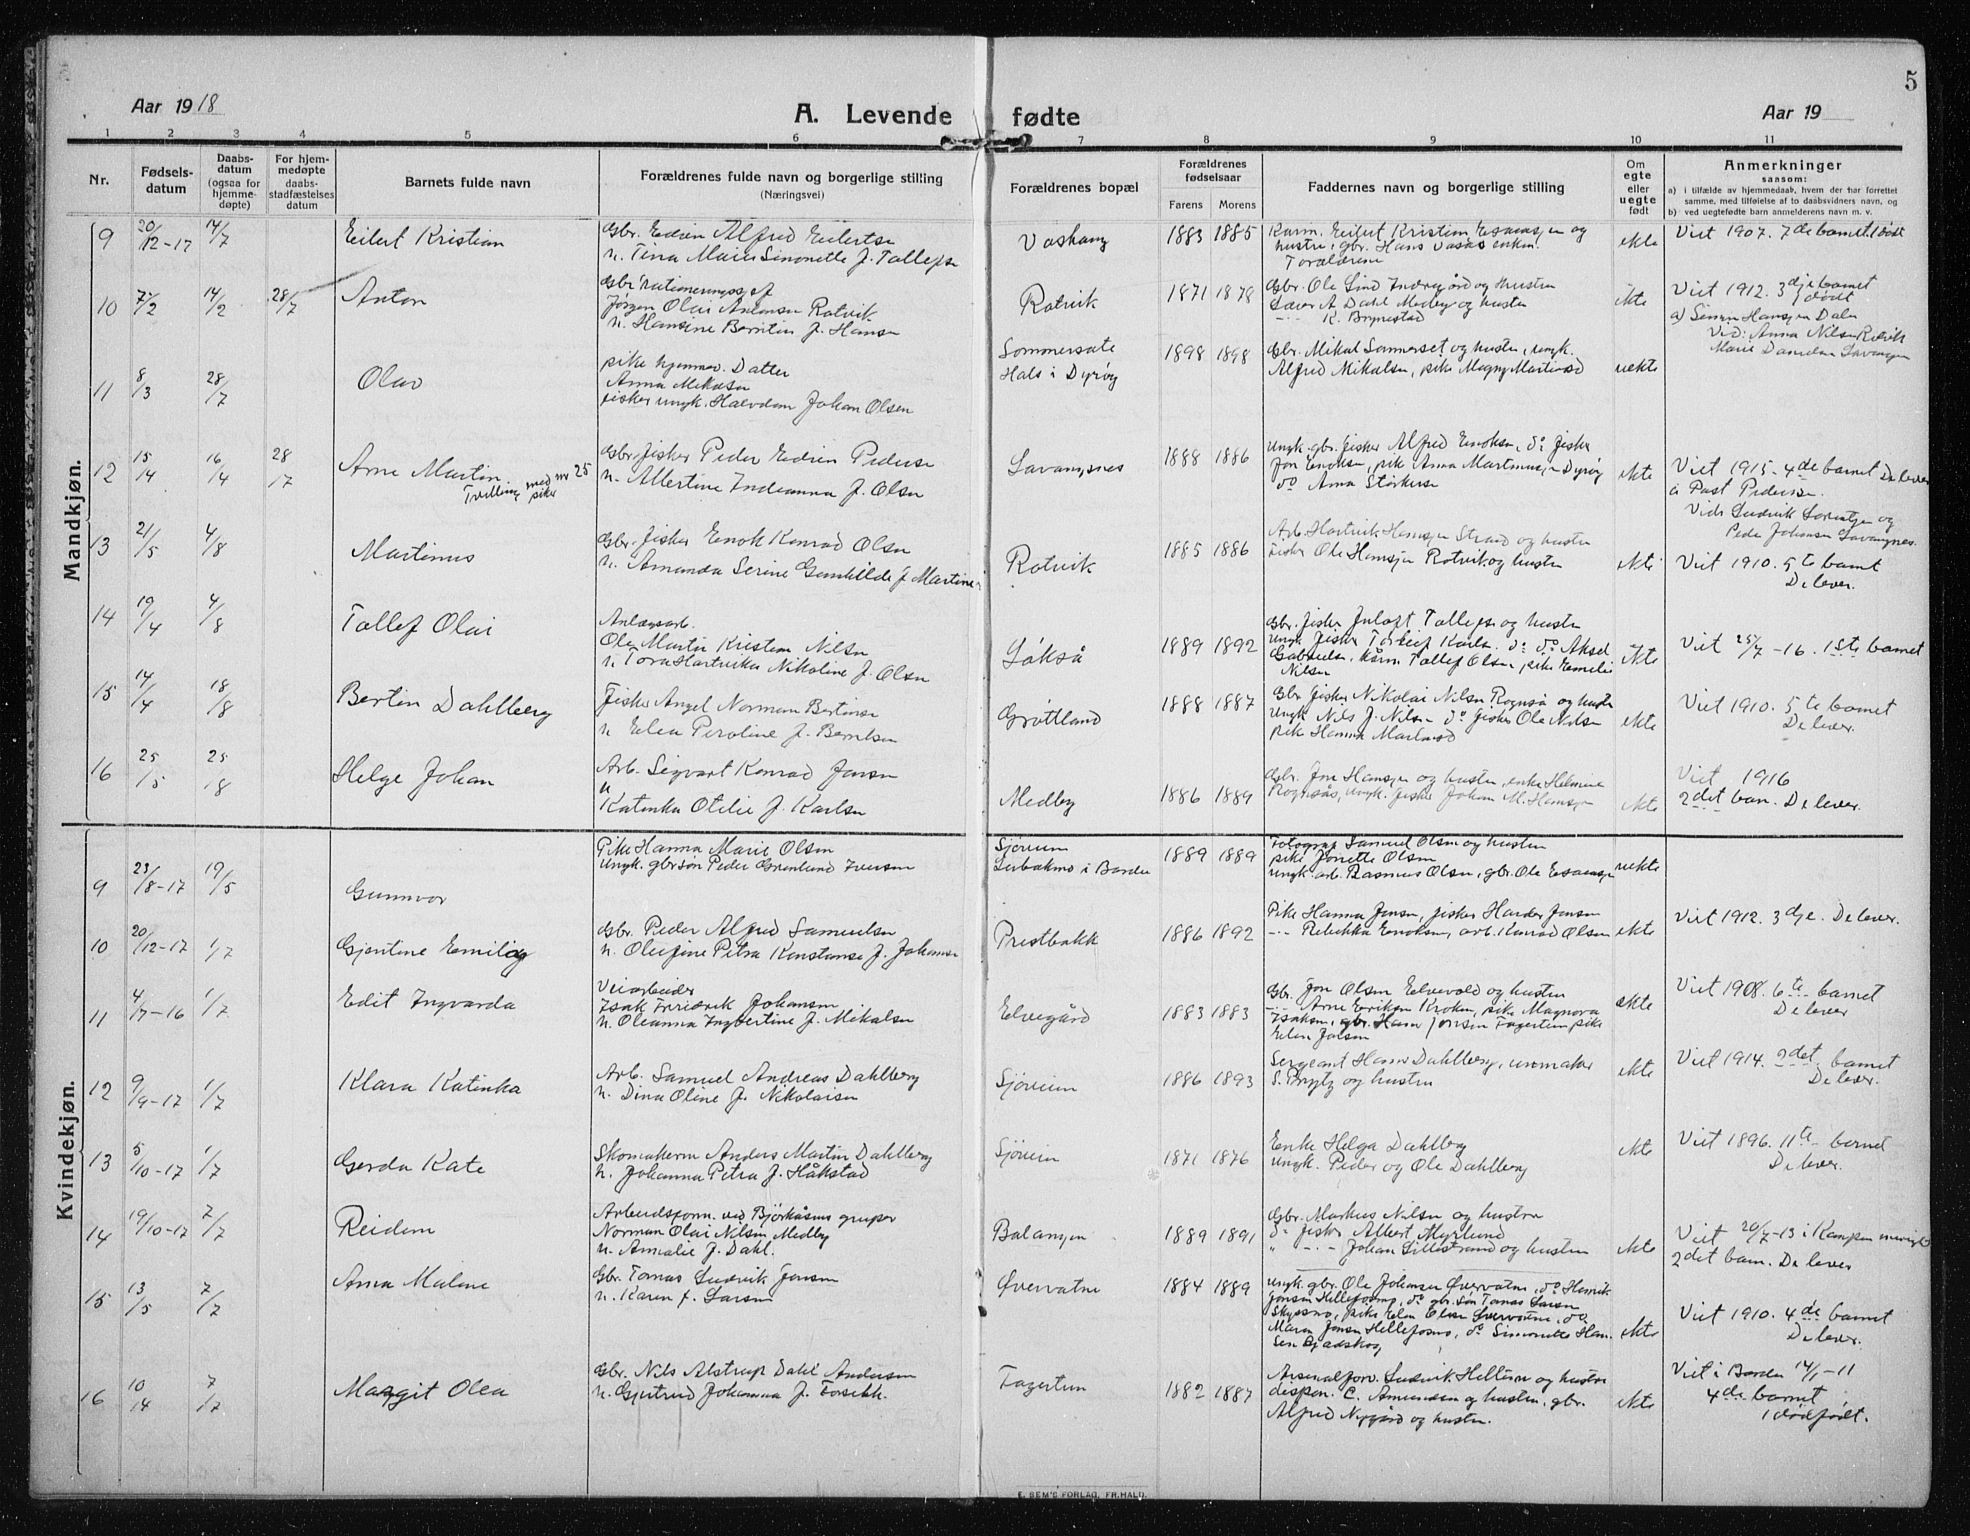 5
Aar 1918
A. Levende fødte
Aar 19
1 2 3 4 5 6 7 8 9 10 11
Nr.
Fødsels-
datum
Daabs-
datum
(ogsaa for
hjemme-
døpte)
For hjem-
medøpte
daabs-
stadfæstelses
datum
Barnets fulde navn
Forældrenes fulde navn og borgerlige stilling
(Næringsvei)
Forældrenes bopæl
Forældrenes
fødselsaar
Farens Morens
Faddernes navn og borgerlige stilling
Om
egte
eller
uegte
født
Anmerkninger
saasom:
a) i tilfælde av hjemmedaab, hvem der har forrettet
samme, med tilføielse af to daabsvidners navn, og
b) ved uegtefødte barn anmelderens navn m. v.
Mandkjøn.
9 20/12-17 14/7 Eilert Kristian
Gbr. Edvin Alfred Eilertsen
1883 1885
hustru, gbr. Hans
Forældrene
ekte
Viet 1907. 7de barnet 1 dødt
10 7/2 14/2 28/7 Anton
Jørgen Olai Antonsen Rotvik
Rotvik 1871 1878
Gbr. Ole Lind Indregård og hustru
Lærer A. Dahl Medby og hustru
K. Brynestad
ekte
Viet 1912. 3dje barnet
1 dødt
11 8/3 28/7 Olav
pike hjemmev. Datter
Anna Mikalsen
fisker ungk. Halvdan Johan Olsen
Hals i Dyrøy
1898 1898
Gbr. Mikal Sommerset og hustru, ungk.
Alfred Mikalsen, pike Magny
uekte
12 15/4 16/4 28/7 Arne Martin
Tvilling med nr 25
pike
Gbr. fisker Peder Edvin Pedersen
u. Albertine Indianna f. Olsen
Lavangsnes 1888 1886
Ungk. gbr. fisker Alfred Enoksen, do fisker
Jon Enoksen, pike Anna Dyrøy
do Anna
ekte
Viet 1915 - 4de barnet De lever
Peder Johansen Lavangsnes.
13 21/5 4/8 Martinus
Gbr. fisker Enok Konrad Olsen
u. Amanda Serine Gunhilde f. Martinsen
Rotvik 1885 1886
Arb. Hartvik Hansen Strand og hustru
Fisker Ole Hansen Rotvik og hustru
ekte
Viet 1910. 5te barnet
De lever.
14 19/4 4/8 Tollef Olai
Anlægsarb.
Ole Martin Kristian Nilsen
u. Tora Hartvika Nikoline f. Olsen
Løkså 1889 1892
Gbr. fisker Tollefsen og hustru
Nilsen
ekte
Viet 25/7-16. 1ste barnet
15 14/4 18/8 Bertin Dahlberg
Fisker Angel Norman Bertinsen
u. Elea Peroline f. Berntsen
Grøttland 1888 1887
Gbr. fisker Nikolai Nilsen Rognså og hustru
Ungk. Nils J. Nilsen do fisker Ole Nilsen
pike Hanna
ekte
Viet 1910. 5te barnet
De lever.
16 25/5 25/8 Helge Johan
Arb. Sigvart Konrad Jensen
u
Katinka Otilie f. Karlsen
Medby 1886 1889
Gbr. Jon Hansen og hustru, enke Helmine
Rognsås, ungk. fisker Johan M. Hansen
ekte
Viet 1916
2det barn. De lever.
Kvindekjøn.
9 23/8-17 19/5 Gunnvor
Pike Hanna Marie Olsen
Ungk. gbr søn Peder Grønlund Iversen
Sjøveien
i Bardu
1889 1889
Fotograf Samuel Olsen og hustru
pike Jonette Olsen
Ungk. arb. Rasmus Olsen, gbr. Ole
uekte
10 20/12-17 1/7 Gjertine Emilie
Gbr. Peder Alfred Samuelsen
u. Olufine Petra Konstanse f. Johansen
Prestbakk 1886 1892
Pike Hanna Jensen, fisker Harder Jensen
Rebekka Enoksen, arb. Konrad Olsen
ekte
Viet 1912. 3dje. De lever.
11 4/7-16 1/7 Edit Ingvarda
Veiarbeider
Isak Fredrik Johansen
u. Oleanna Ingbertine f. Mikalsen
Elvegård 1883 1883
Gbr. Jon Olsen Elvevold og hustru
Arne Eriksen Kroken, pike Magnora
Isaksen, gbr. Hans Jensen Fagertun pike
ekte
Viet 1908. 6te barnet
De lever
12 9/9-17 1/7 Klara Katinka
Arb. Samuel Andreas Dahlberg
u. Dina Oline f. Nikolaisen
Sjøveien 1886 1893
Sergeant Hans Dahlberg, urmaker
S. Brytz og hustru
ekte
Viet 1914. 2det barnet
De lever.
13 5/10-17 1/7 Gerda Kate
Skomakerm Anders Martin Dahlberg
u. Johanna Petra f. Håkstad
Sjøveien 1871 1876
Enke Helga Dahlberg
Ungk. Peder og Ole Dahlberg
ekte
Viet 1896. 11te barnet
De lever.
14 19/10-17 7/7 Reidun
Arbeidsform. ved Bjørkåsens gruber
Norman Olai Nilsen Medby
u. Annalie f. Dahl.
Balangen 1889 1891
Gbr. Markus Nilsen og hustru
do fisker Albert Myrlund
" - Johan Lillestrand og hustru
ekte
Viet 20/7-13 i Kampen menighet
2det barn. De lever
15 13/5 7/7 Anna Malene
Gbr. Tomas Ludvik Jensen
u. Karen f. Larsen
Øvervatne 1884 1889
Ungk. gbr. Ole Johansen Øvervatne, do Henrik
Jensen do gbr. søn Tomas Larsen
pike Elen Olsen Øvervatne, do.
Maren Jensen Hellefosmo, do Simonette Han-
sen
ekte
Viet 1910. 4de barnet
De lever.
16 10/4 7/7 Margit Olea
Gbr. Nils Alstrup Dahl Andersen
u. Gjertrud Johanna f. Forsbkk.
Fagertun 1882 1887
Arsenalforv. Ludvik Heltzen og hustru
dispon. C. Amundsen og hustru, gbr.
Alfred Nygård og hustru.
ekte
Viet i Bardu 14/1-11
4de barnet
1 dødfødt.
E. SEM'S FORLAG, FR.HALD.